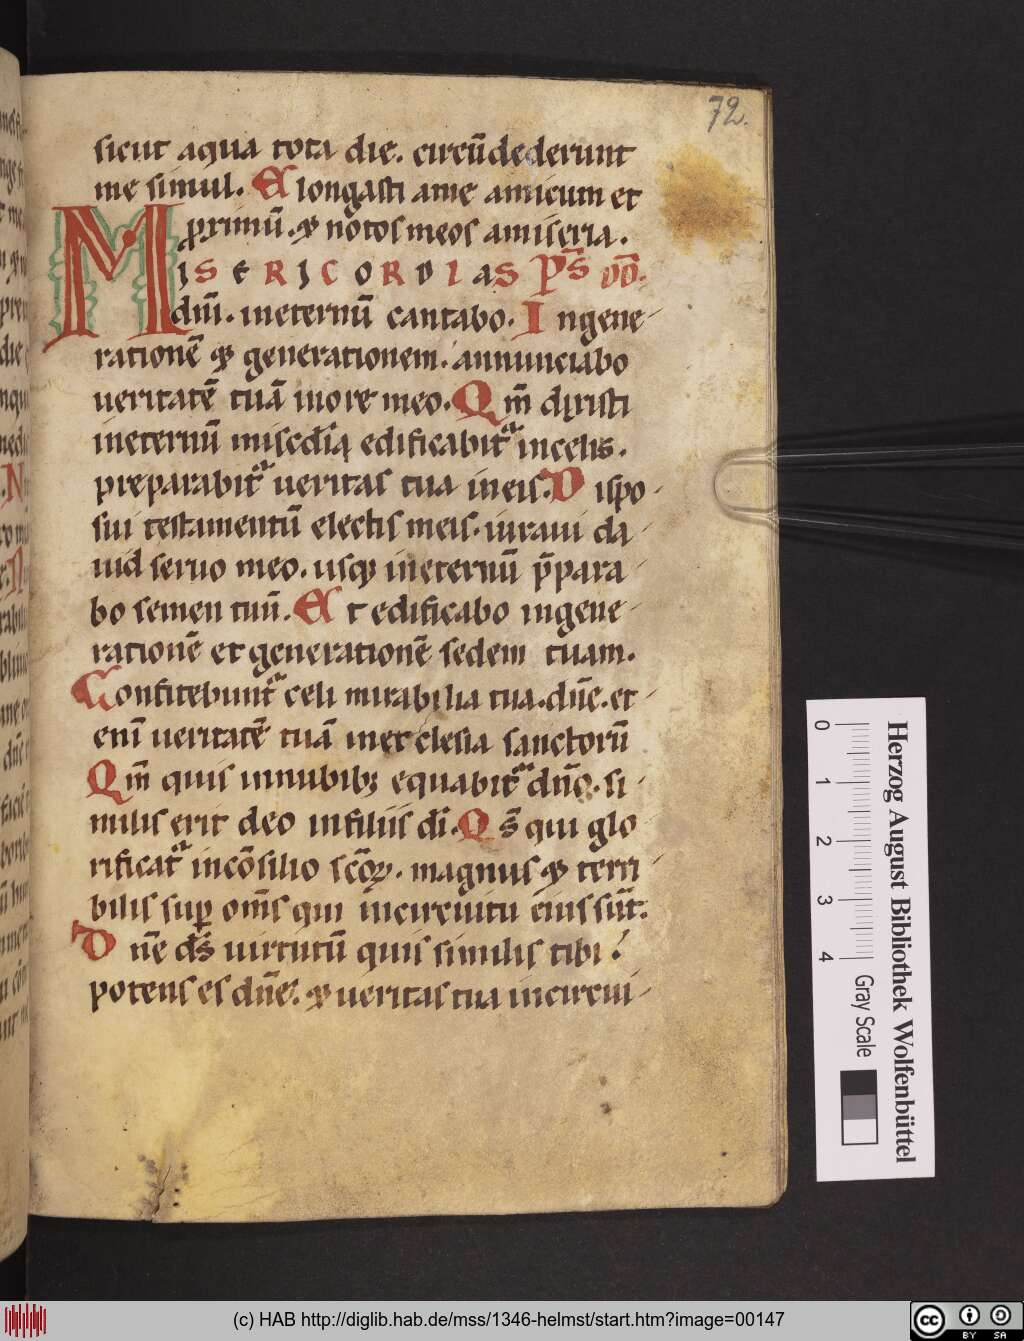 72.
sicut aqua tota die. circūdederunt
me simul. Elongasti a me amicum et
proximū. et notos meos a miseria.
MISERICORDIAS Ps DD.
dn̄i. in eternū cantabo. In gene
rationē et generationem. annunciabo
ueritatē tuā in ore meo. Qm̄ dixisti
in eternū misc̄dia edificabit᷑ in celis.
preparabit᷑ ueritas tua in eis. Dispo
sui testamentū electis meis. iuraui da
uid seruo meo. usq; in eternū p̄para
bo semen tuū. Et edificabo in gene
rationē et generationē sedem tuam.
Confitebunt᷑ celi mirabilia tua. dn̄e. et
eni ueritatē tuā in ecclesia sanctorū
Qm̄ quis in nubib; equabit᷑ dn̄o. si
milis erit deo in filiis dī. Ds̄ qui glo
rificat᷑ in cōsilio scōꝝ. magnus et terri
bilis sup om̄s qui in circuitu eius sūt.
Dn̄e ds̄ uirtutū quis similis tibi.
potens es dn̄e. et ueritas tua in circui
Herzog August Bibliothek Wolfenbüttel
0 1 2 3 4 Gray Scale
(c) HAB http://diglib.hab.de/mss/1346-helmst/start.htm?image=00147
cc BY SA